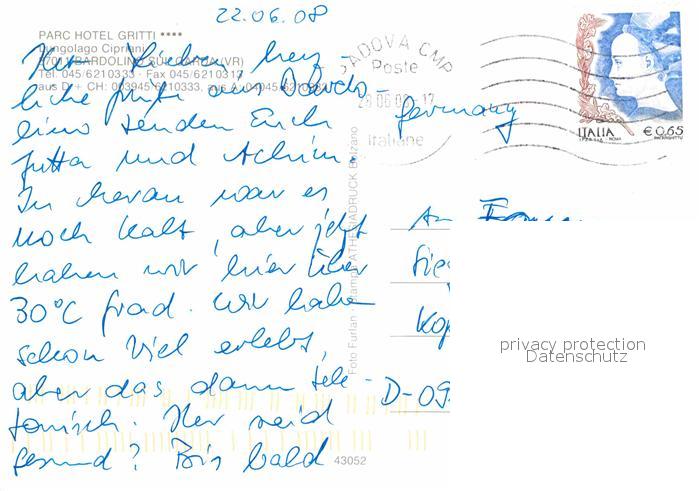 22.06.08
PARC HOTEL GRITTI ****
Lungolago Cipriani
37011 BARDOLINO SUL GARDA (VR)
Tel. 045/6210333 - Fax 045/6210313
aus D + CH: 003945/6210333, aus A: 04945/6210333
Ihr Lieben, herz-
liche Grüße aus Bardo-
lino senden Euch
Jutta und Achim.
In Meran war es
noch kalt, aber jetzt
haben wir hier über
30°C Grad. Wir haben
schon viel erlebt,
aber das dann tele-
fonisch. Ihr seid
gesund? Bis bald
PADOVA CMP
Poste
Italiane
Germany
ITALIA €0,65
An
D-09
Foto Furlan - Stampa ATHESIADRUCK Bolzano
43052
privacy protection
Datenschutz